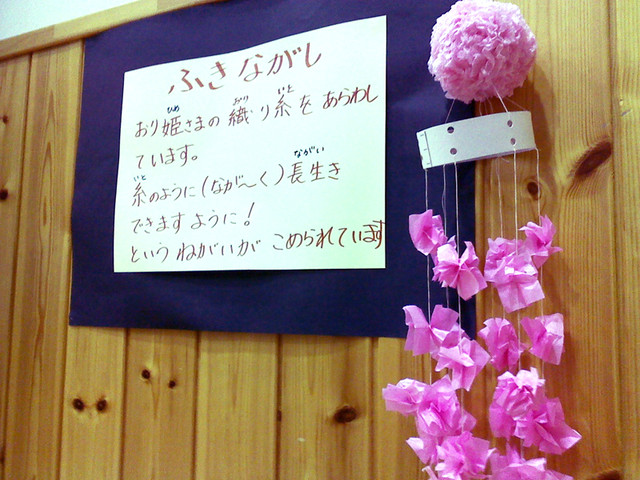 ふきながし
おり姫さまの織り糸をあらわし
ています。
糸のように(なが〜く)長生き
できますように!
というねがいが こめられています